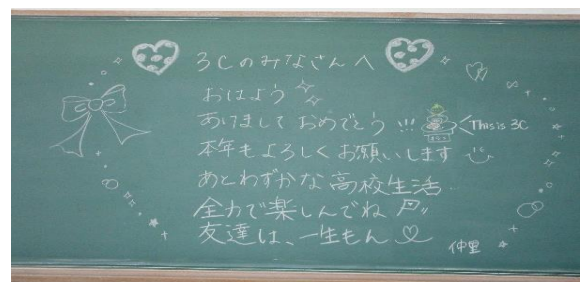 3Cのみなさんへ
おはよう
あけまして おめでとう !!!
This is 3C
本年もよろしくお願いします
あとわずかな高校生活‥
全力で楽しんでね
友達は、一生もん
仲里